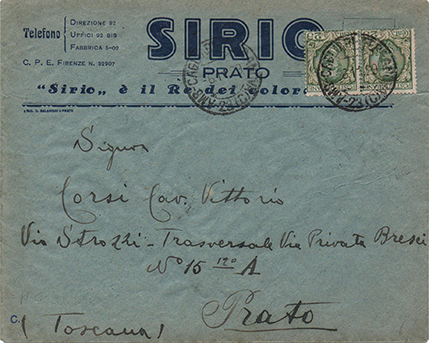 Telefono
Direzione 92
Uffici 92 bis
Fabbrica 5-02
C. P. E. Firenze N. 32907
SIRIO
PRATO
"Sirio„ è il Re dei
Signor
Corsi Cav. Vittorio
Via Strozzi - Trasversale Via Privata Bresci
N° 15 12° A
Prato
C.
(Toscana)